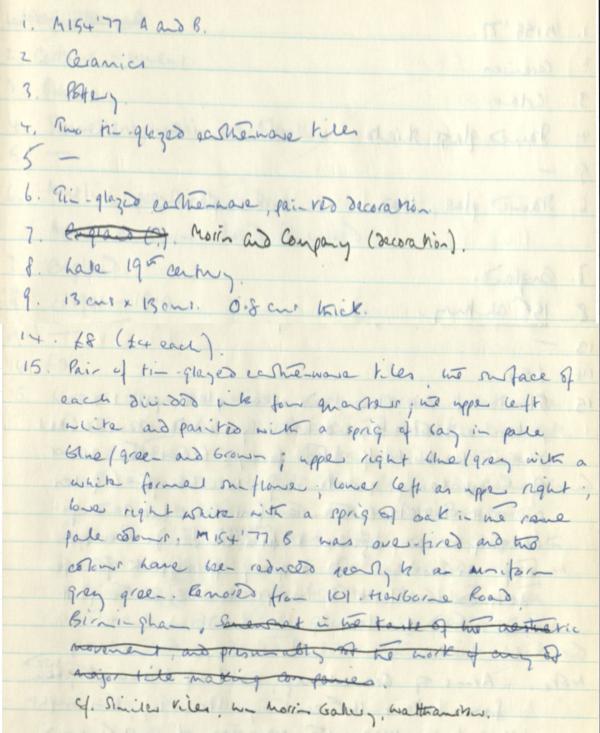 1. M154'77 A and B.
2 Ceramics
3. Pottery.
4. Two tin-glazed earthenware tiles
5 —
6. Tin-glazed earthenware, painted decoration
7. England (?). Morris and Company (decoration).
8. Late 19th century.
9. 13 cms x 13 cms. 0.8 cms thick.
14. £8 (£4 each).
15. Pair of tin-glazed earthenware tiles, the surface of
each divided into four quarters; the upper left
white and painted with a sprig of bay in pale
blue/green and brown; upper right blue/grey with a
white formal sunflower; lower left as upper right;
lower right white with a sprig of oak in the same
pale colours. M154'77 B was over-fired and the
colours have been reduced nearly to an uniform
grey green. Removed from 101. Harborne Road,
Birmingham. Somewhat in the taste of the aesthetic
movement, and presumably of the work of any of
major tile-making companies.
c/. Similar tiles, Wm Morris Gallery, Walthamstow.